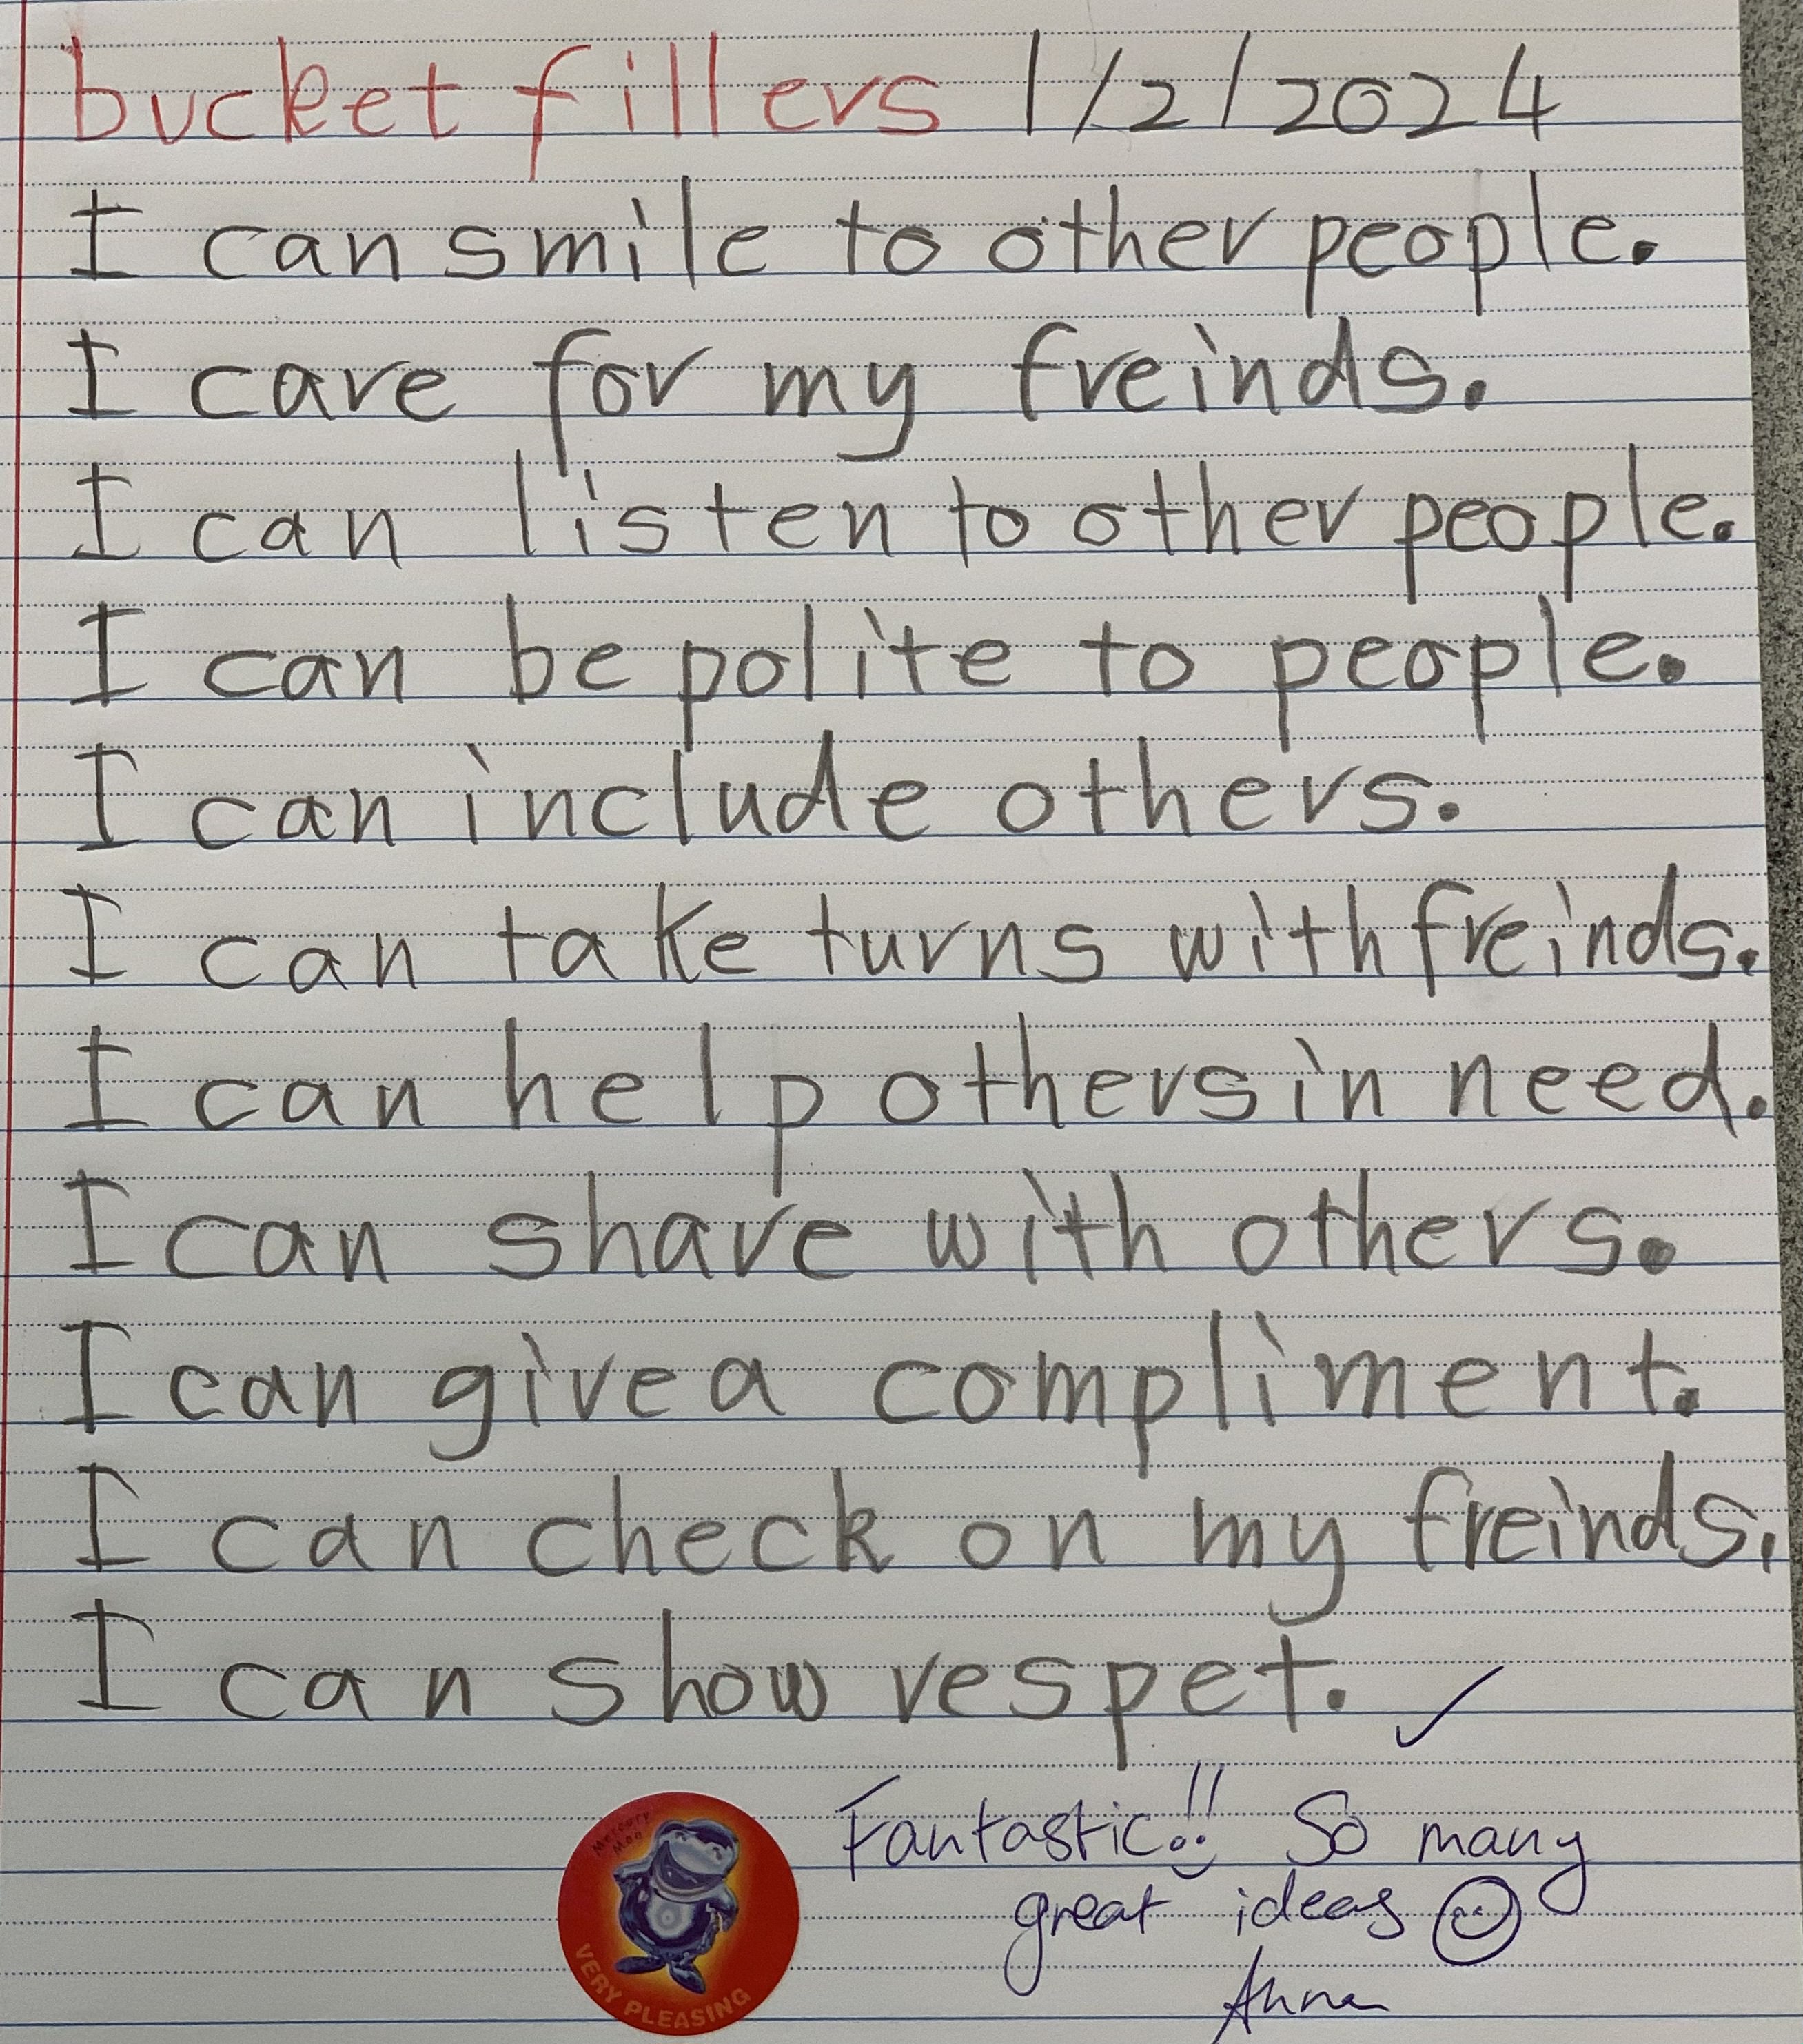 bucket fillers 1/2/2024
I can smile to other people.
I care for my freinds.
I can listen to other people.
I can be polite to people.
I can include others.
I can take turns with freinds.
I can help others in need.
I can share with others.
I can give a compliment.
I can check on my freinds.
I can show respet.
Fantastic!! So many
great ideas
Anna
Mercury
Man
VERY PLEASING